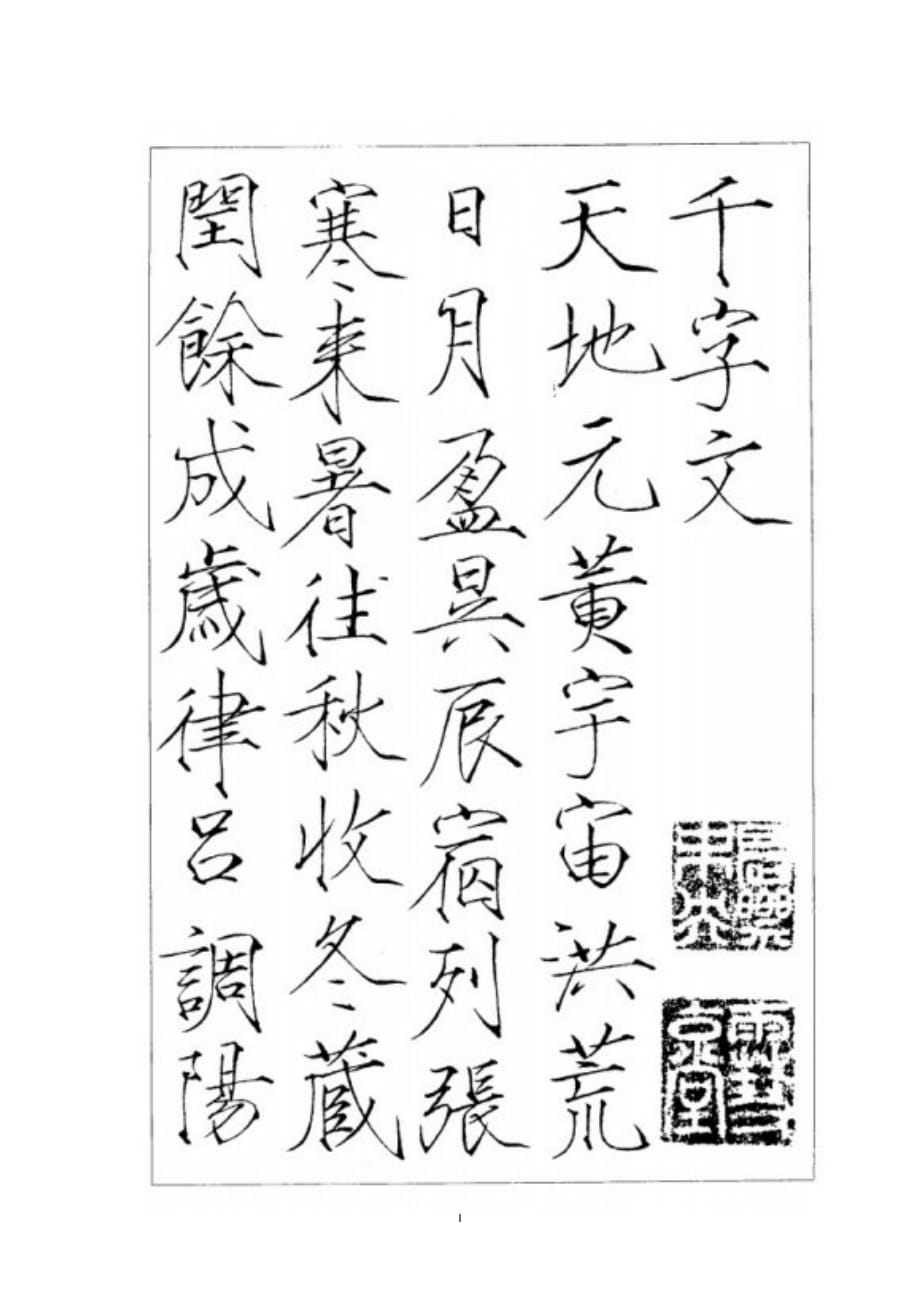 千字文
天地元黃宇宙洪荒
日月盈昃辰宿列張
寒来暑往秋收冬蔵
閏餘成歲律呂調陽
1